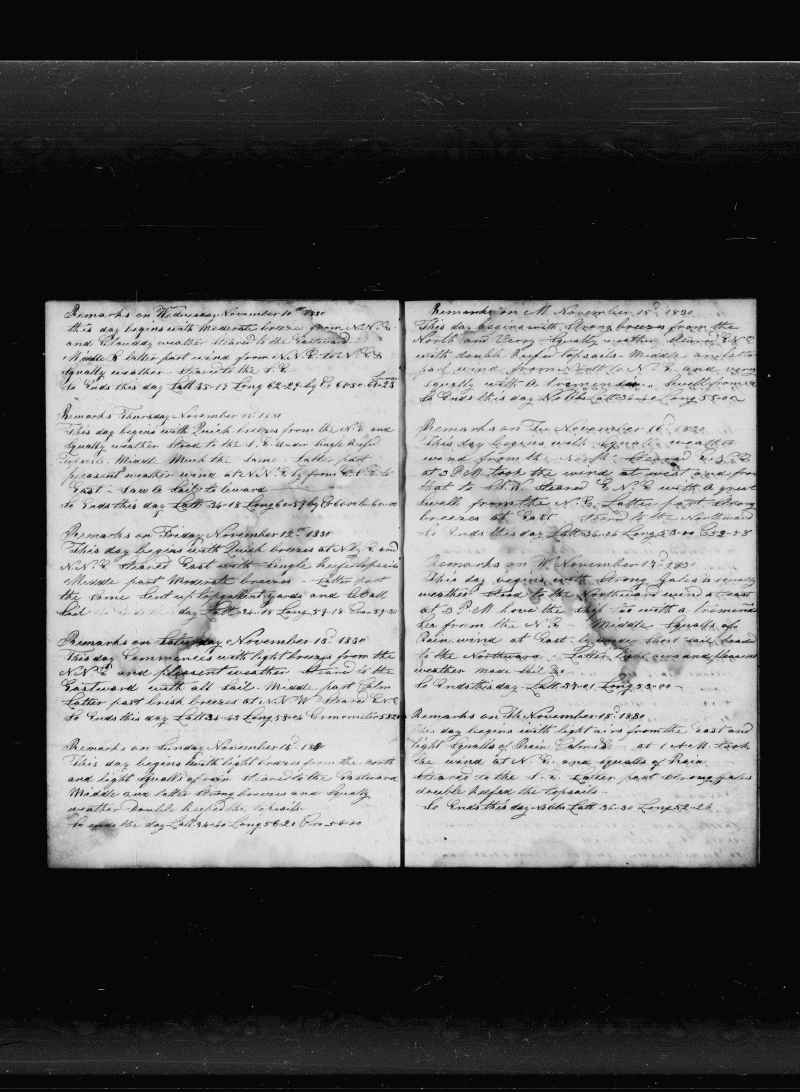 Remarks on Wednesday November 10th 1830
this day begins with Moderate breezes from N.N.E.
and Clouday weather steared to the Eastward
Middle & latter part wind from N.N.E. to N.E.
Squally weather steared to the S.E.
So Ends this day Latt 35-17 Long 62-29 by
Remarks Thursday November 11th 1830
This day begins with Fresh breezes from the N.E. and
Squally weather Stood to the S.E. under Single Reefd
topsails Middle Much the same Latter part
pleasent weather wind at N.N.E.
East saw a Sail to leward
So Ends this day Latt 34-18 Long 60-59 by
Remarks on Friday November 12th 1830
This day begins with Fresh breezes at N.E. and
N.N.E. steared East with Single Reef topsails
Middle part Moderate breezes Latter part
the same Sent up topgallent yards and
Sail day Latt 34-18 Long 59-18
Remarks on Saturday November 13th 1830
This day Commences with light breezes from the
N.N.E and pleasent weather Steared to the
Eastward with all sail Middle part Calm
Latter part brisk breezes at N.N.W Steared E.N.E
So Ends this day Latt 34-43 Long 58-04 Cronometer
Remarks on Sunday November 14th 1830
This day begins with light breezes from the north
and light squalls of rain steared to the Eastward
Middle and latter Strong breezes and Squaly
weather Double Reefed the topsails
So ends the day Latt 34-40 Long 56-20 Cro 56-00
Remarks on M. November 15th 1830
This day begins with Strong breezes from the
North and Verry Squally weather Steared E.N.E
with double Reefed topsails Middle and latter
part wind from North to N.E. and verry
squally with A tremendous Swell from
So Ends this day No Obs Latt Long 55-00
Remarks on Tu November 16th 1830
This day begins with Squally weather
wind from the North Steared E.N.E
at 3 P.M. took the wind at west and from
that to S.W Steared E.N.E with A great
Swell from the N.E. Latter part Strong
breezes at East Steared to the Northward
So Ends this day Latt 36-06 Long 53-00
Remarks on W. November 17th 1830
This day begins with Strong Gales & squaly
weather Stood to the Northward wind at east
at 3 P.M hove the Ship too with a tremend
Sea from the N.E Middle Squalls of
Rain wind at East under Short sail
to the Northward Latter light airs and pleasent
weather made Sail &c
So Ends this day Latt 37-01 Long 53-00
Remarks on Th November 18th 1830
this day begins with light airs from the east and
light squalls of Rain Calms &c at 1 A.M. took
the wind at N.E. and squalls of Rain
steared to the S.E. Latter part Strong gales
double Reefed the topsails
So Ends this day No Obs Latt 36-30 Long 52-20